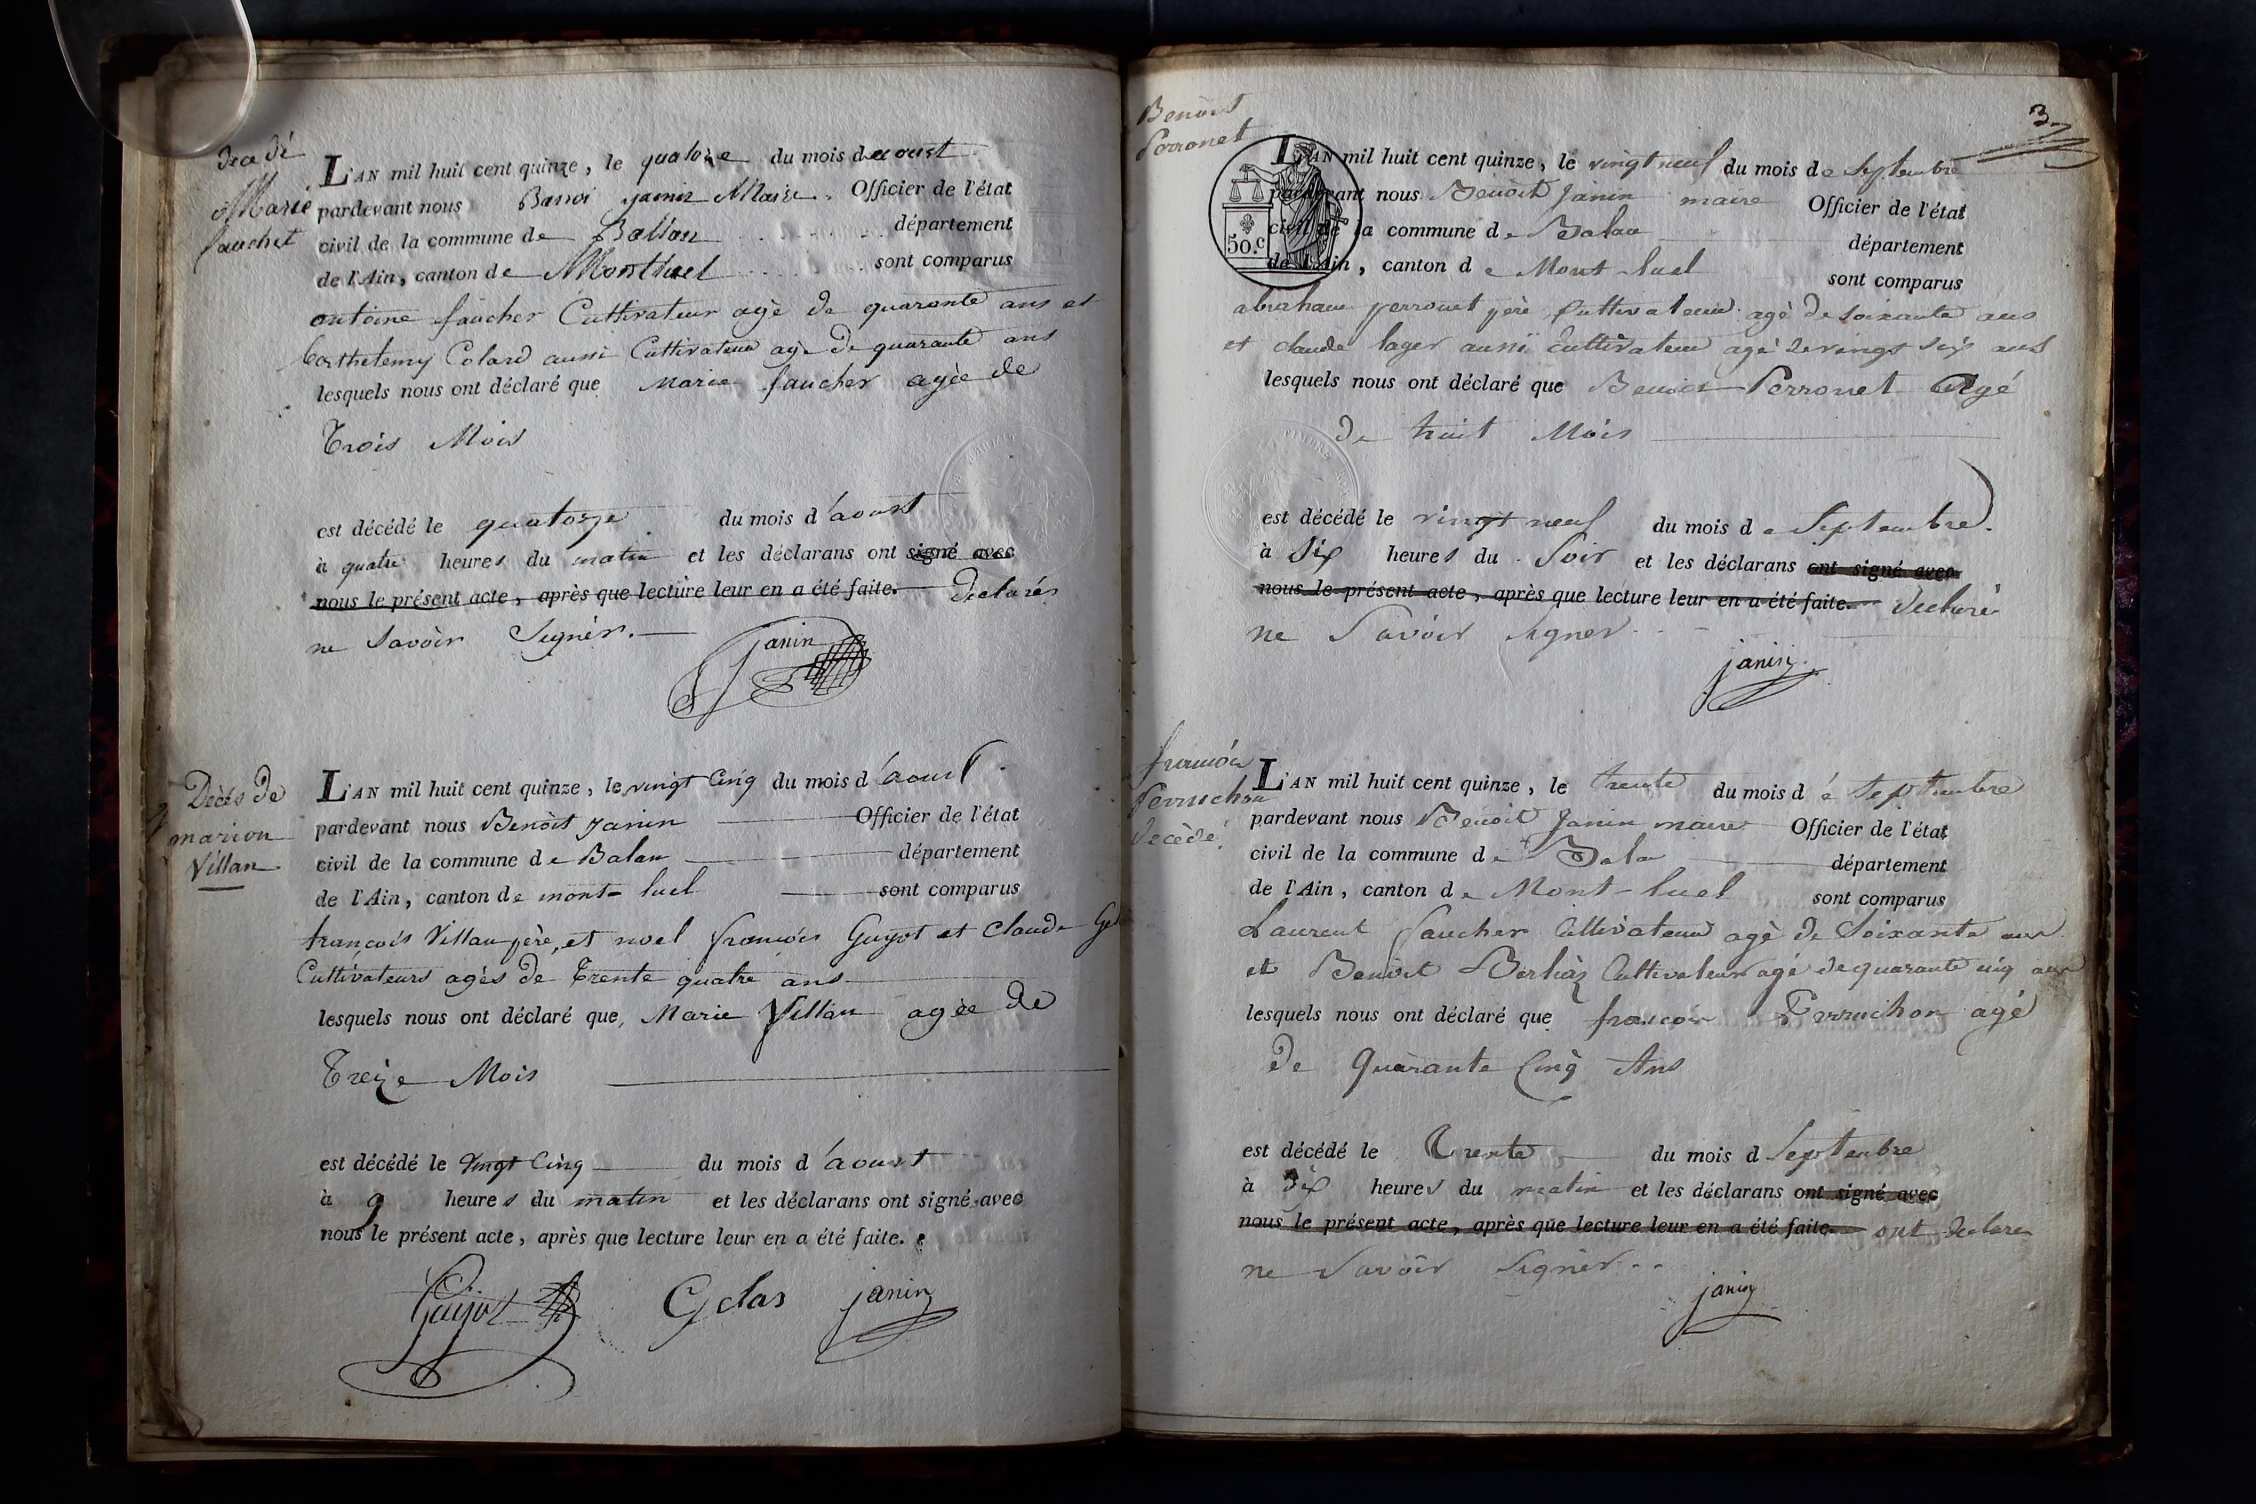 decedé
Marie
fauchet
L'AN mil huit cent quinze, le quatorze du mois d'aoust
pardevant nous Janin Maire Officier de l'état
civil de la commune de Ballan département
de l'Ain, canton de Montluel sont comparus
antoine faucher Cultivateur agé de quarante ans et
barthelemy Colard aussi Cultivateur agé de quarante ans
lesquels nous ont déclaré que Marie faucher agée de
Trois Mois
est décédé le quatorze du mois d'aoust
à quatre heures du matin et les déclarans ont signé avec
nous le présent acte, après que lecture leur en a été faite. declarés
ne Savoir Signér.
janin
Décés de
marion
Villan
L'AN mil huit cent quinze, le vingt Cinq du mois d'aoust
pardevant nous Benoit Janin Officier de l'état
civil de la commune de Balan département
de l'Ain, canton de mont-luel sont comparus
françois Villan père, et noel françois Guyot et Claude
Cultivateurs agés de Trente quatre ans
lesquels nous ont déclaré que, Marie Villan agée de
Treize Mois
est décédé le vingt Cinq du mois d'aoust
à 9 heures du matin et les déclarans ont signé avec
nous le présent acte, après que lecture leur en a été faite.
Guyot Gelas janin
Benoit
Perronet
3
50.c
L'AN mil huit cent quinze, le vingt neuf du mois de Septembre
pardevant nous Benoit Janin maire Officier de l'état
civil de la commune de Balan département
de l'Ain, canton de Mont-luel sont comparus
abraham perronet père Cultivateur agé de soixante ans
et claude lager aussi Cultivateur agé de vingt six ans
lesquels nous ont déclaré que Benoit Perronet Agé
de huit Mois
est décédé le vingt neuf du mois de Septembre.
à Six heures du Soir et les déclarans ont signé avec
nous le présent acte, après que lecture leur en a été faite. declaré
ne Savoir signer
janin
françois
Perruchon
décédé
L'AN mil huit cent quinze, le trente du mois de Septembre
pardevant nous Benoit Janin maire Officier de l'état
civil de la commune de Bala département
de l'Ain, canton de Mont-luel sont comparus
Laurent faucher Cultivateur agé de Soixante ans
et Benoit Berliaz Cultivateur agé de quarante ans
lesquels nous ont déclaré que françois Perruchon agé
de Quarante Cinq Ans
est décédé le Trente du mois d Septembre
à heures du matin et les déclarans ont signé avec
nous le présent acte, après que lecture leur en a été faite. ont declare
ne Savoir Signér
janin